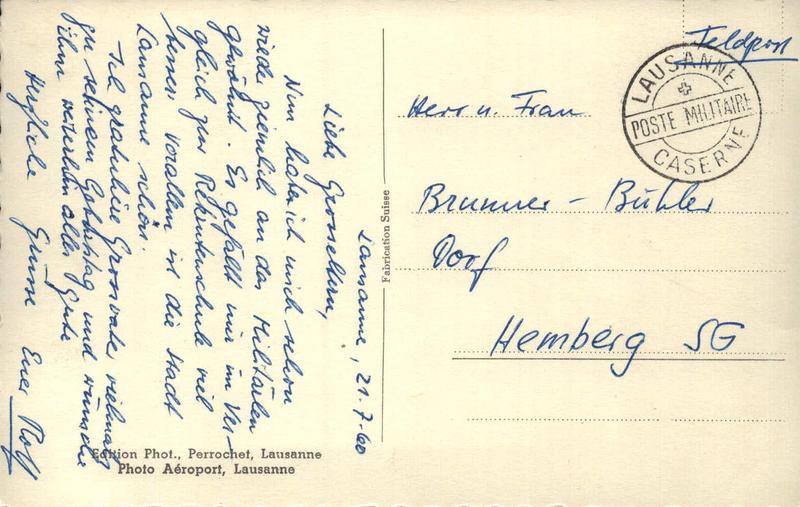 Lausanne, 21.7.60
Liebe Grosseltern,
Nun habe ich mich schon
wieder ziemlich an das Militärleben
gewöhnt. Es gefällt mir im Ver-
gleich zur Rekrutenschule viel
besser. Vorallem ist die Stadt
Lausanne schön.
Ich gratuliere Grossvater vielmals
zu seinem Geburtstag und wünsche
ihm weiterhin alles Gute
Herzliche Grüsse Euer Rolf
Edition Phot., Perrochet, Lausanne
Photo Aéroport, Lausanne
Fabrication Suisse
Feldpost
LAUSANNE
POSTE MILITAIRE
CASERNE
Herr u. Frau
Brunner - Bühler
Dorf
Hemberg SG